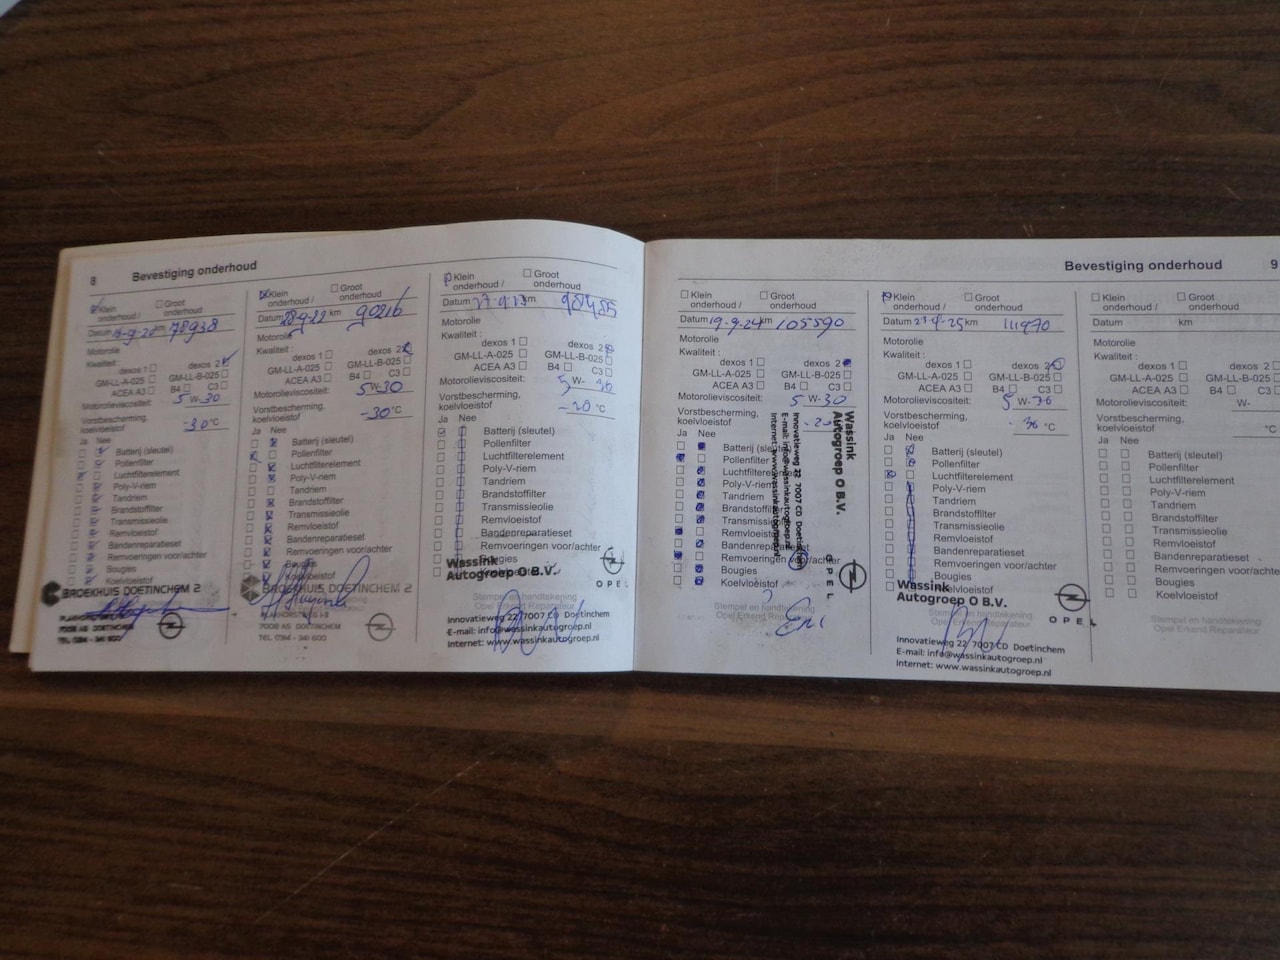 8
Bevestiging onderhoud
Klein onderhoud /
Groot onderhoud
Datum km 78938
Motorolie
Kwaliteit:
dexos 1 dexos 2
GM-LL-A-025 GM-LL-B-025
ACEA A3 B4 C3
Motorolieviscositeit: 5 W-30
Vorstbescherming, koelvloeistof -30 °C
Ja Nee
Batterij (sleutel)
Pollenfilter
Luchtfilterelement
Poly-V-riem
Tandriem
Brandstoffilter
Transmissieolie
Remvloeistof
Bandenreparatieset
Remvoeringen voor/achter
Bougies
Koelvloeistof
BROEKHUIS DOETINCHEM 2
7008 AS DOETINCHEM
TEL. 0314 - 341 600
Klein onderhoud /
Groot onderhoud
Datum 28-9-22 km 90216
Motorolie
Kwaliteit:
dexos 1 dexos 2
GM-LL-A-025 GM-LL-B-025
ACEA A3 B4 C3
Motorolieviscositeit: 5 W-30
Vorstbescherming, koelvloeistof -30 °C
Ja Nee
Batterij (sleutel)
Pollenfilter
Luchtfilterelement
Poly-V-riem
Tandriem
Brandstoffilter
Transmissieolie
Remvloeistof
Bandenreparatieset
Remvoeringen voor/achter
Bougies
Koelvloeistof
BROEKHUIS DOETINCHEM 2
7008 AS DOETINCHEM
TEL. 0314 - 341 600
Klein onderhoud /
Groot onderhoud
Datum km 98485
Motorolie
Kwaliteit:
dexos 1 dexos 2
GM-LL-A-025 GM-LL-B-025
ACEA A3 B4 C3
Motorolieviscositeit: 5 W-
Vorstbescherming, koelvloeistof -20 °C
Ja Nee
Batterij (sleutel)
Pollenfilter
Luchtfilterelement
Poly-V-riem
Tandriem
Brandstoffilter
Transmissieolie
Remvloeistof
Bandenreparatieset
Remvoeringen voor/achter
Bougies
Wassink
Autogroep O B.V.
OPEL
Stempel en handtekening
Opel Erkend Reparateur
Innovatieweg 22 7007 CD Doetinchem
E-mail: info@wassinkautogroep.nl
Internet: www.wassinkautogroep.nl
Bevestiging onderhoud
9
Klein onderhoud /
Groot onderhoud
Datum 19-9-24 km 105590
Motorolie
Kwaliteit:
dexos 1 dexos 2
GM-LL-A-025 GM-LL-B-025
ACEA A3 B4 C3
Motorolieviscositeit: 5 W-30
Vorstbescherming, koelvloeistof
Ja Nee
Batterij (sleutel)
Pollenfilter
Luchtfilterelement
Poly-V-riem
Tandriem
Brandstoffilter
Transmissieolie
Remvloeistof
Bandenreparatieset
Remvoeringen voor/achter
Bougies
Koelvloeistof
Wassink
Autogroep O B.V.
Innovatieweg 22 7007 CD Doetinchem
E-mail: info@wassinkautogroep.nl
Internet: www.wassinkautogroep.nl
OPEL
Stempel en handtekening
Opel Erkend Reparateur
Klein onderhoud /
Groot onderhoud
Datum km 111970
Motorolie
Kwaliteit:
dexos 1 dexos 2
GM-LL-A-025 GM-LL-B-025
ACEA A3 B4 C3
Motorolieviscositeit: 5 W-
Vorstbescherming, koelvloeistof °C
Ja Nee
Batterij (sleutel)
Pollenfilter
Luchtfilterelement
Poly-V-riem
Tandriem
Brandstoffilter
Transmissieolie
Remvloeistof
Bandenreparatieset
Remvoeringen voor/achter
Bougies
Wassink
Autogroep O B.V.
OPEL
Stempel en handtekening
Opel Erkend Reparateur
Innovatieweg 22 7007 CD Doetinchem
E-mail: info@wassinkautogroep.nl
Internet: www.wassinkautogroep.nl
Klein onderhoud /
Groot onderhoud
Datum km
Motorolie
Kwaliteit:
dexos 1 dexos 2
GM-LL-A-025 GM-LL-B-025
ACEA A3 B4 C3
Motorolieviscositeit: W-
Vorstbescherming, koelvloeistof °C
Ja Nee
Batterij (sleutel)
Pollenfilter
Luchtfilterelement
Poly-V-riem
Tandriem
Brandstoffilter
Transmissieolie
Remvloeistof
Bandenreparatieset
Remvoeringen voor/achter
Bougies
Koelvloeistof
Stempel en handtekening
Opel Erkend Reparateur